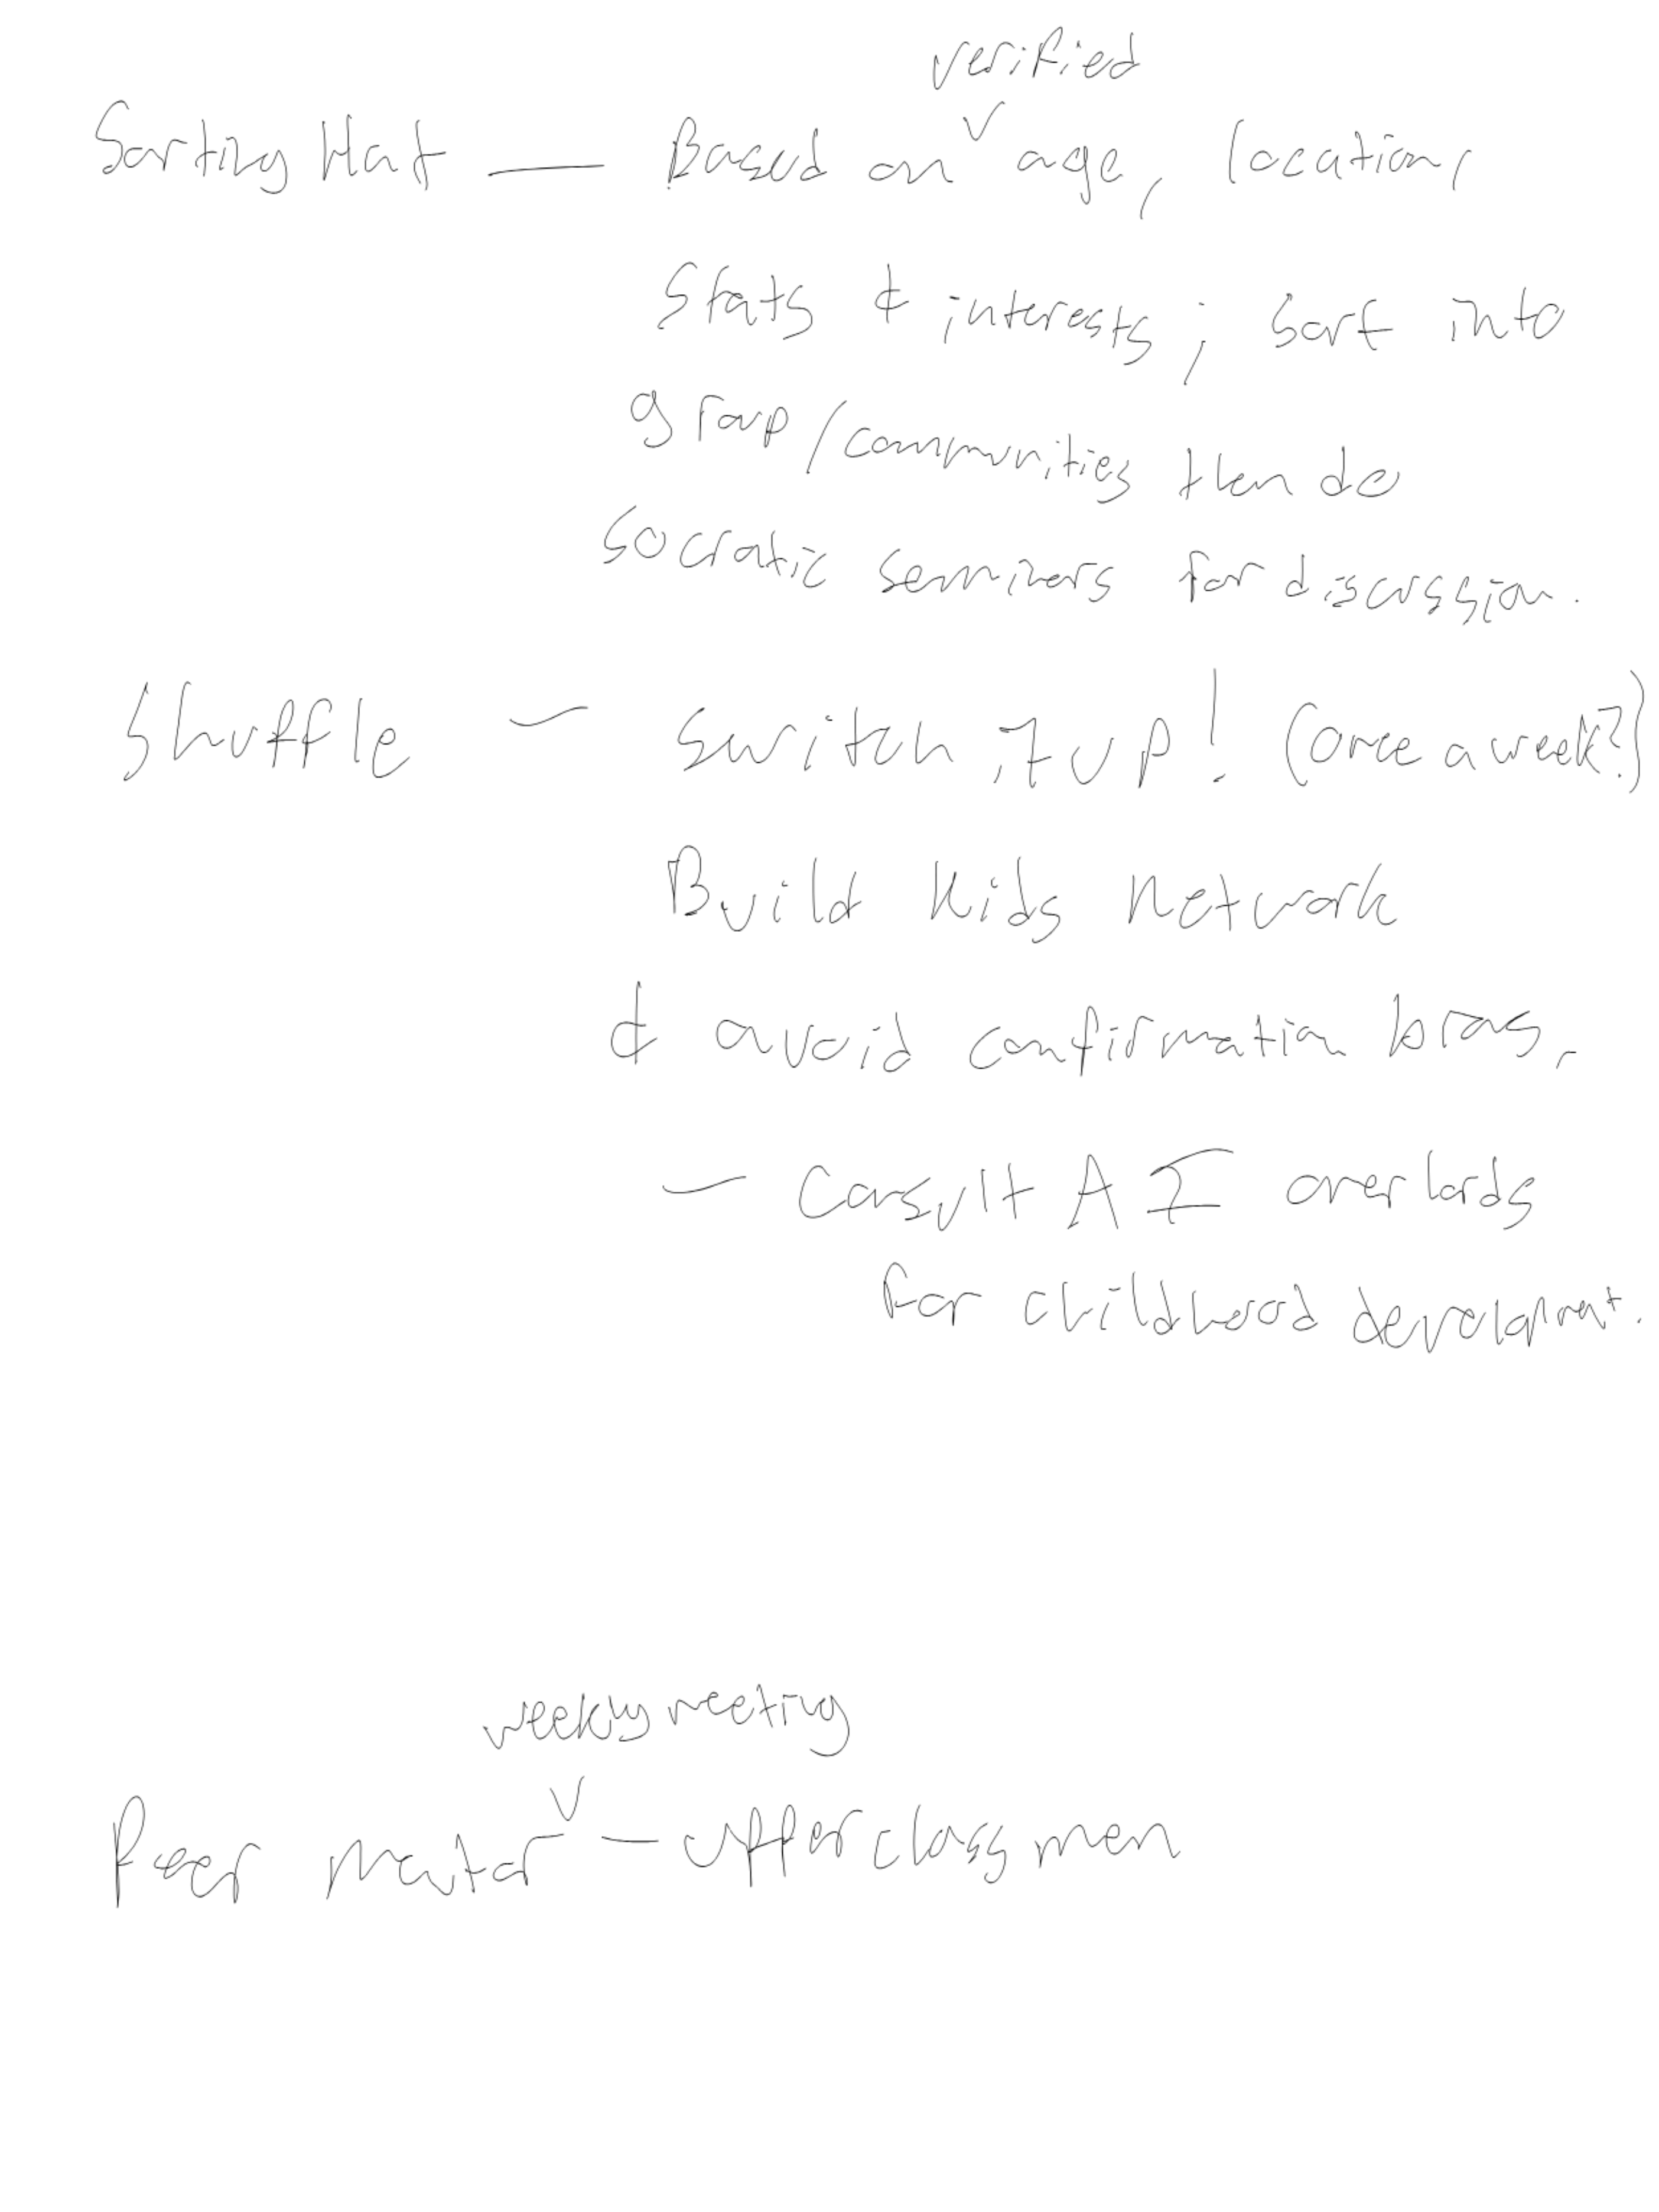 verified
Sorting Hat — Based on ^ age, location,
Stats & interests; sort into
group/communities then do
Socratic seminars for discussion.
Shuffle — switch it up! (once a week?)
Build kids network
& avoid confirmation bias.
— Consult AI overlords
for childhood development.
weekly meeting
Peer mentor ^ — upperclassmen